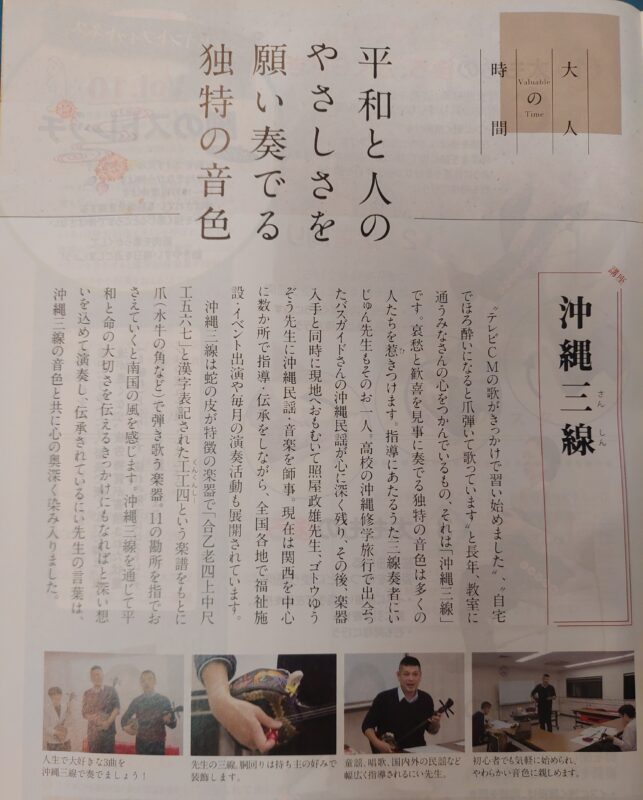 大人
の
時間
Valuable
Time
平和と人の
やさしさを
願い奏でる
独特の音色
講座
沖縄三線
さんしん
“テレビCMの歌がきっかけで習い始めました”、“自宅
でほろ酔いになると爪弾いて歌っています”と長年、教室に
通うみなさんの心をつかんでいるもの、それは「沖縄三線」
です。哀愁と歓喜を見事に奏でる独特の音色は多くの
人たちを惹きつけます。指導にあたるうた三線奏者にい
じゅん先生もそのお一人、高校の沖縄修学旅行で出会っ
たバスガイドさんの沖縄民謡が心に深く残り、その後、楽器
入手と同時に現地へおもむいて照屋政雄先生、ゴトウゆう
ぞう先生に沖縄民謡・音楽を師事。現在は関西を中心
に数か所で指導・伝承をしながら、全国各地で福祉施
設・イベント出演や毎月の演奏活動も展開されています。
沖縄三線は蛇の皮が特徴の楽器で「合乙老四上中尺
工五六七」と漢字表記された工工四という楽譜をもとに
爪（水牛の角など）で弾き歌う楽器。11の勘所を指でお
さえていくと南国の風を感じます。沖縄三線を通じて平
和と命の大切さを伝えるきっかけにもなればと深い想
いを込めて演奏し、伝承されているにい先生の言葉は、
沖縄三線の音色と共に心の奥深く染み入りました。
人生で大好きな3曲を
沖縄三線で奏でましょう！
先生の三線。胴回りは持ち主の好みで
装飾します。
童謡、唱歌、国内外の民謡など
幅広く指導されるにい先生。
初心者でも気軽に始められ、
やわらかい音色に親しめます。